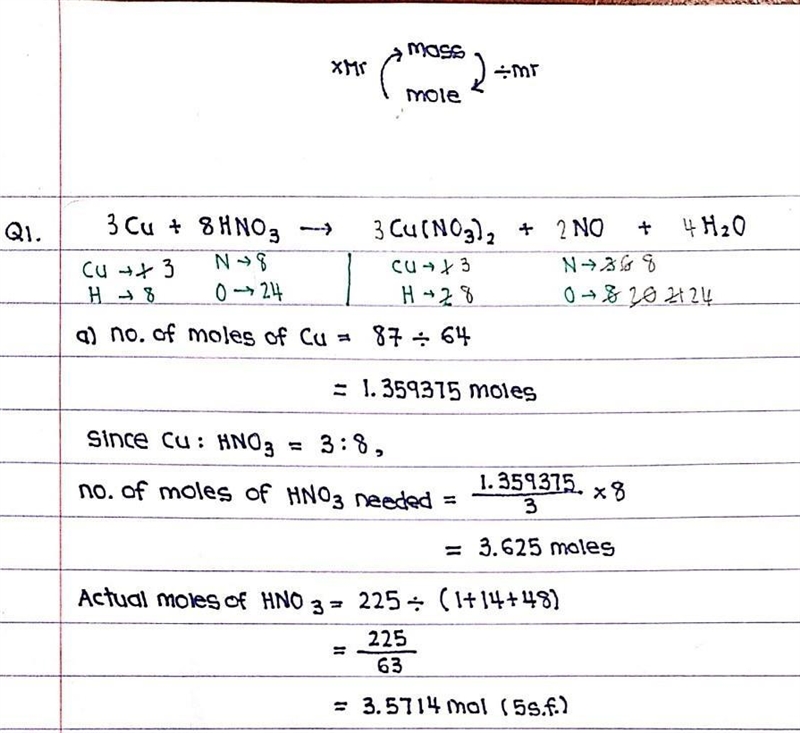 mass
×Mr ÷mr
mole
Q1. 3Cu + 8HNO₃ → 3Cu(NO₃)₂ + 2NO + 4H₂O
Cu → 3 N → 8 Cu → 3 N → 8
H → 8 O → 24 H → 8 O → 24
a) no. of moles of Cu = 87 ÷ 64
= 1.359375 moles
since Cu : HNO₃ = 3:8,
no. of moles of HNO₃ needed = 1.359375/3 × 8
= 3.625 moles
Actual moles of HNO₃ = 225 ÷ (1+14+48)
= 225/63
= 3.5714 mol (5s.f.)